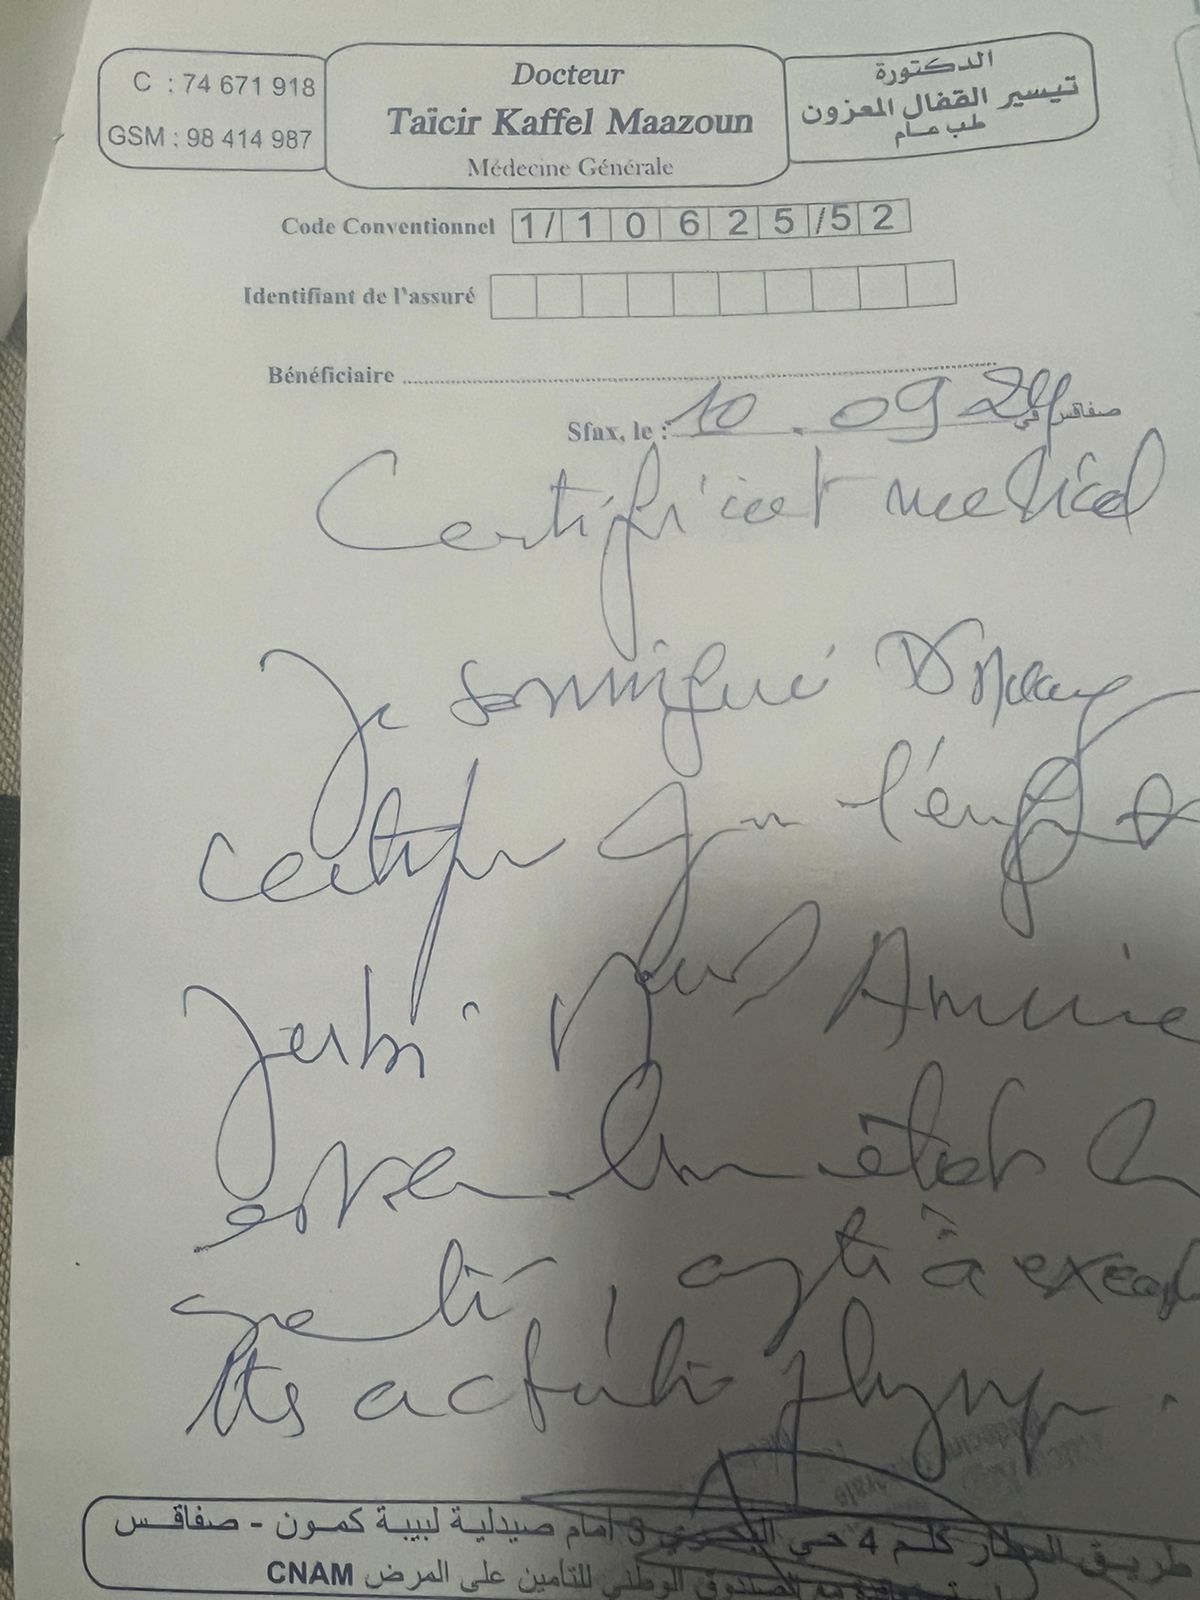 C : 74 671 918
GSM : 98 414 987
Docteur
Taïcir Kaffel Maazoun
Médecine Générale
الدكتورة
تيسير القفال المعزون
طب عام
Code Conventionnel 1/10625/52
Identifiant de l'assuré
Bénéficiaire
Sfax, le : 10.09 24 صفاقس في
Certificat medical
Je soussigné Dr
certifie que l'enfant
Jerbi Amine
est en bon état de
santé, apte à exercer
tts activités physiq.
طريق المطار كلم 4 حي البحري 3 أمام صيدلية لبيبة كمون - صفاقس
الصندوق الوطني للتأمين على المرض CNAM